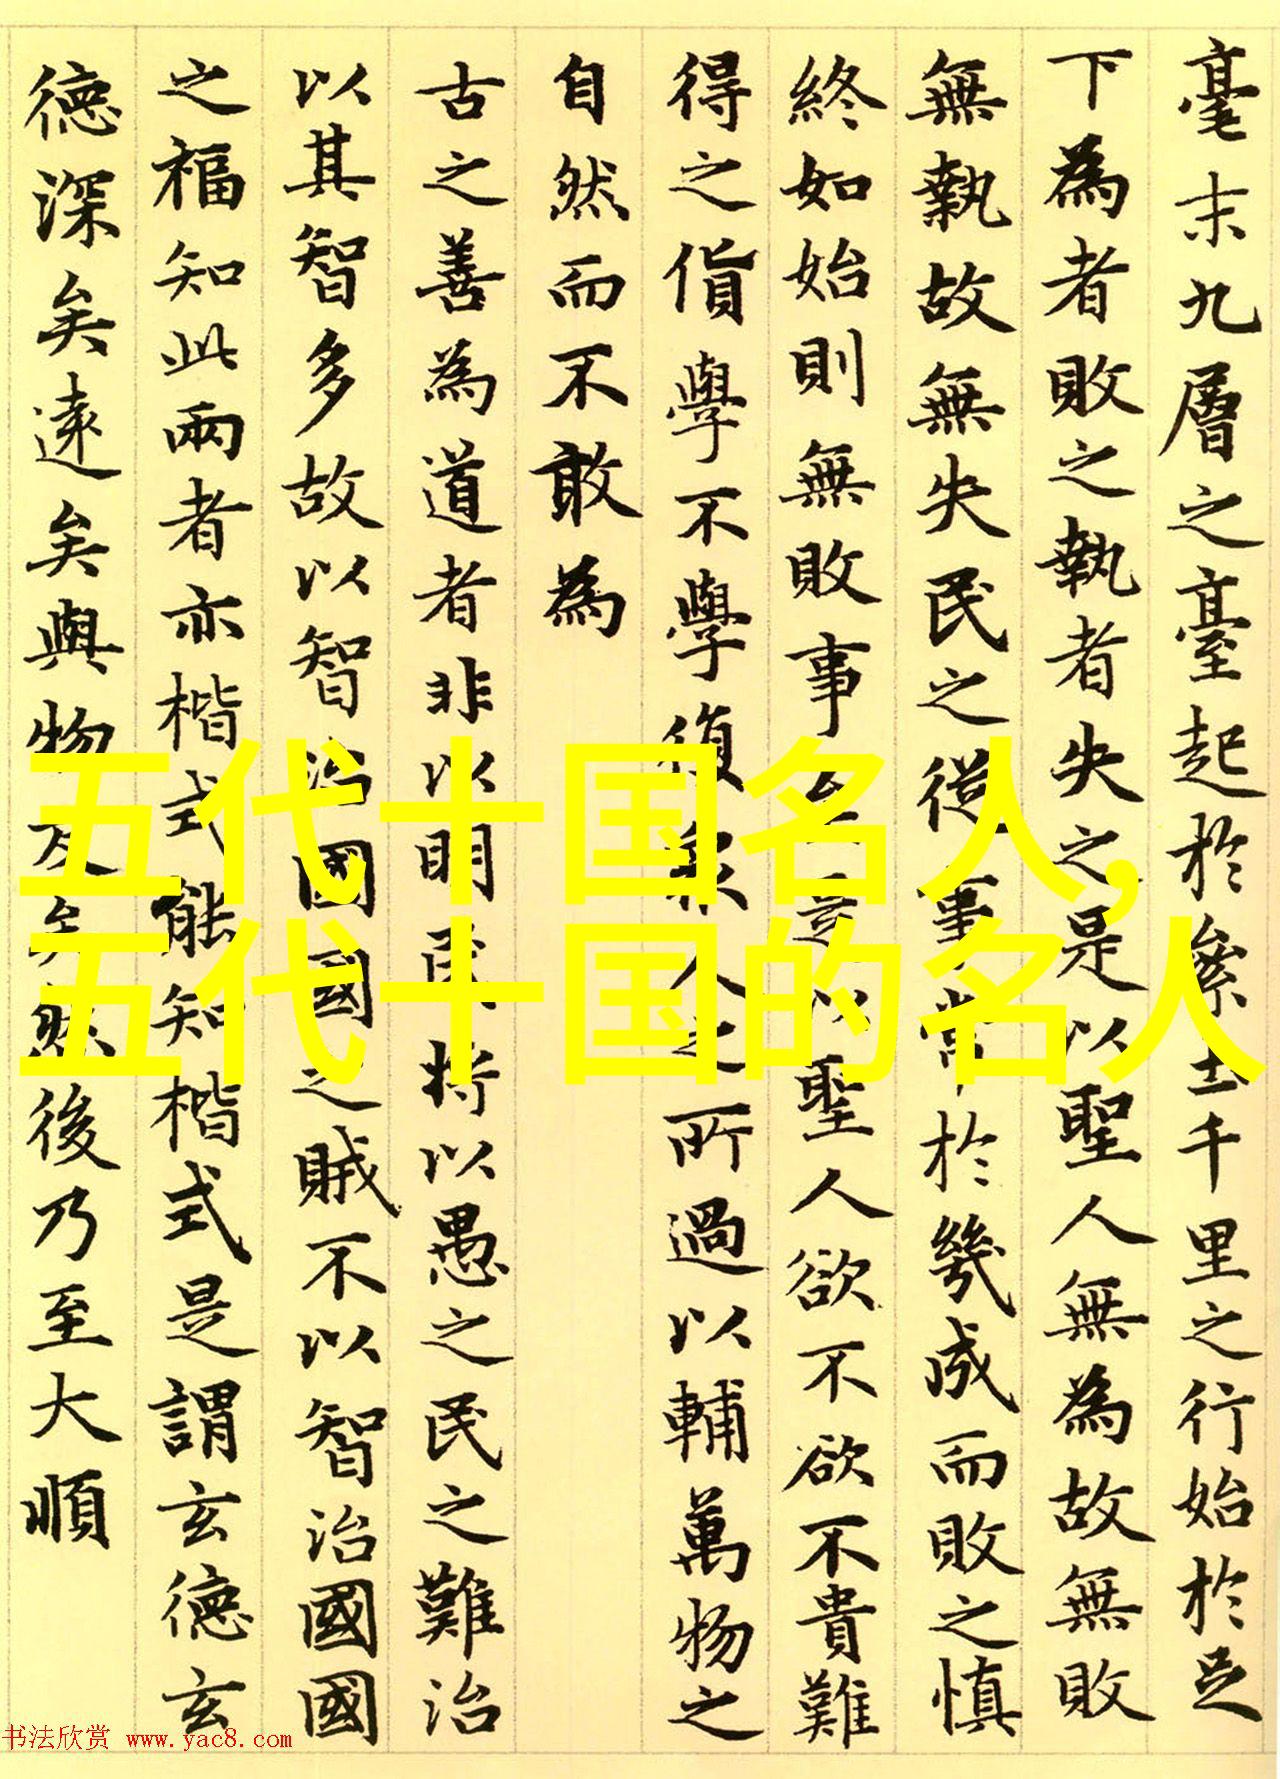 毫末九層之臺起於絫土千里之行始於足
下為者敗之執者失之是以聖人無為故無敗
無執故無失民之從事常於幾成而敗之慎
終如始則無敗事是以聖人欲不欲不貴難
得之貨學不學復眾人之所過以輔萬物之
自然而不敢為
古之善為道者非以明民將以愚之民之難治
以其智多故以智治國國之賊不以智治國國
之福知此兩者亦楷式能知楷式是謂玄德玄
德深矣遠矣與物反矣然後乃至大順
五代十国名人,
五代十国的名人
书法欣赏 www.yac8.com